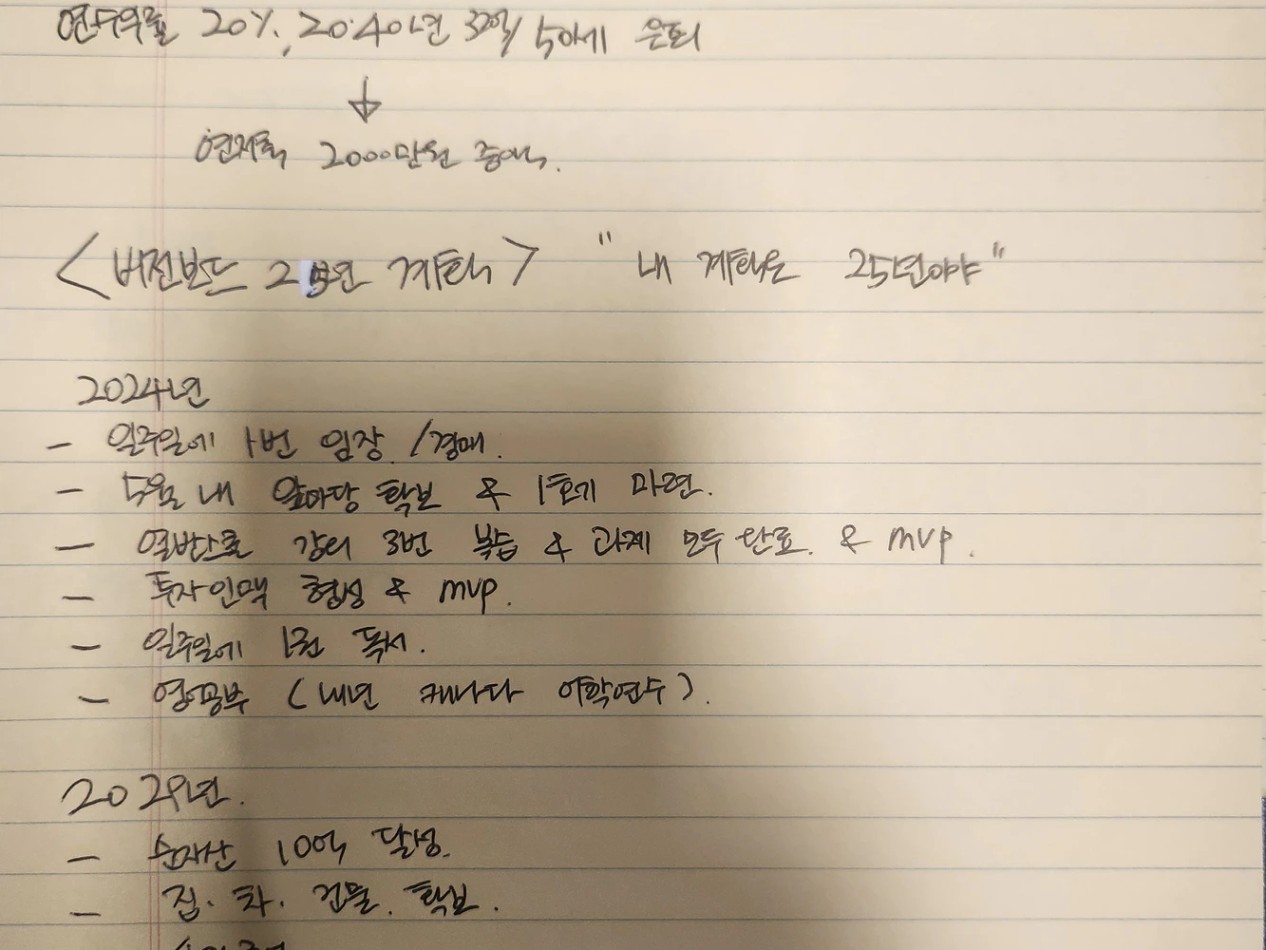 연수익률 20%, 2040년 32억 / 50세 은퇴
↓
연저축 2000만원 증액.
<비전보드 25년 계획> "내 계획은 25년이야"
2024년
- 일주일에 1번 임장 / 경매.
- 5월 내 앞마당 확보 & 1호기 마련.
- 열반스쿨 강의 3번 복습 & 과제 모두 완료. & mvp.
- 투자인맥 형성 & mvp.
- 일주일에 1권 독서.
- 영어공부 (내년 캐나다 어학연수).
2029년.
- 순자산 10억 달성.
- 집. 차. 건물. 확보.